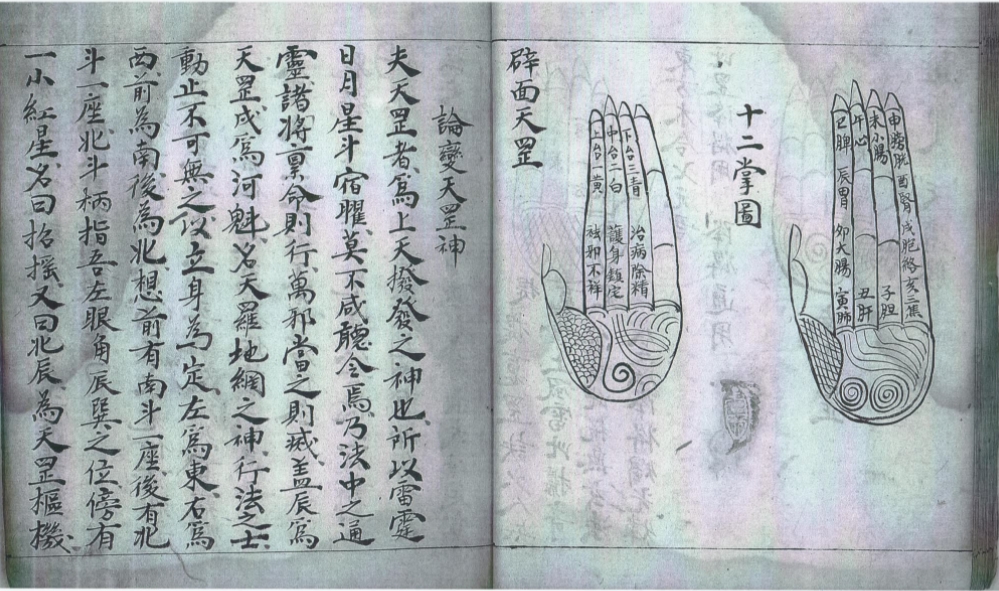 申膀胱 酉腎 戌胞絡 亥三蕉
未小腸 子胆
午心 丑肝
巳脾 辰胃 卯大腸 寅肺
十二掌圖
下台三青 治病除精
中台二白 護身鎮定
上台一黃 祛邪不祥
辟面天罡
論變天罡神
夫天罡者爲上天撥發之神也所以雷霆
日月星斗宿曜莫不咸聽令焉乃法中之通
靈諸將稟命則行萬邪當之則滅盖辰爲
天罡戌爲河魁名天羅地網之神行法之士
動止不可無之以立身為定左爲東右爲
西前為南後為北想前有南斗一座後有北
斗一座北斗柄指吾左眼角辰巽之位傍有
一小紅星名曰招摇又曰北辰為天罡樞機